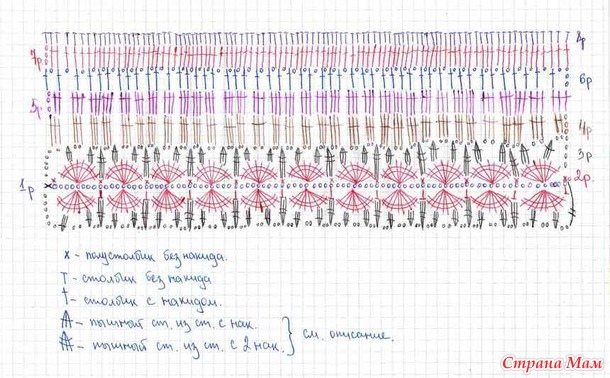 8р
7р.
6р
5р.
4р
3р
2р.
1р
х - полустолбик без накида.
Т - столбик без накида
† - столбик с накидом.
- пышный ст. из ст. с нак.
- пышный ст. из ст. с 2 нак.
} см. описание.
Страна Мам